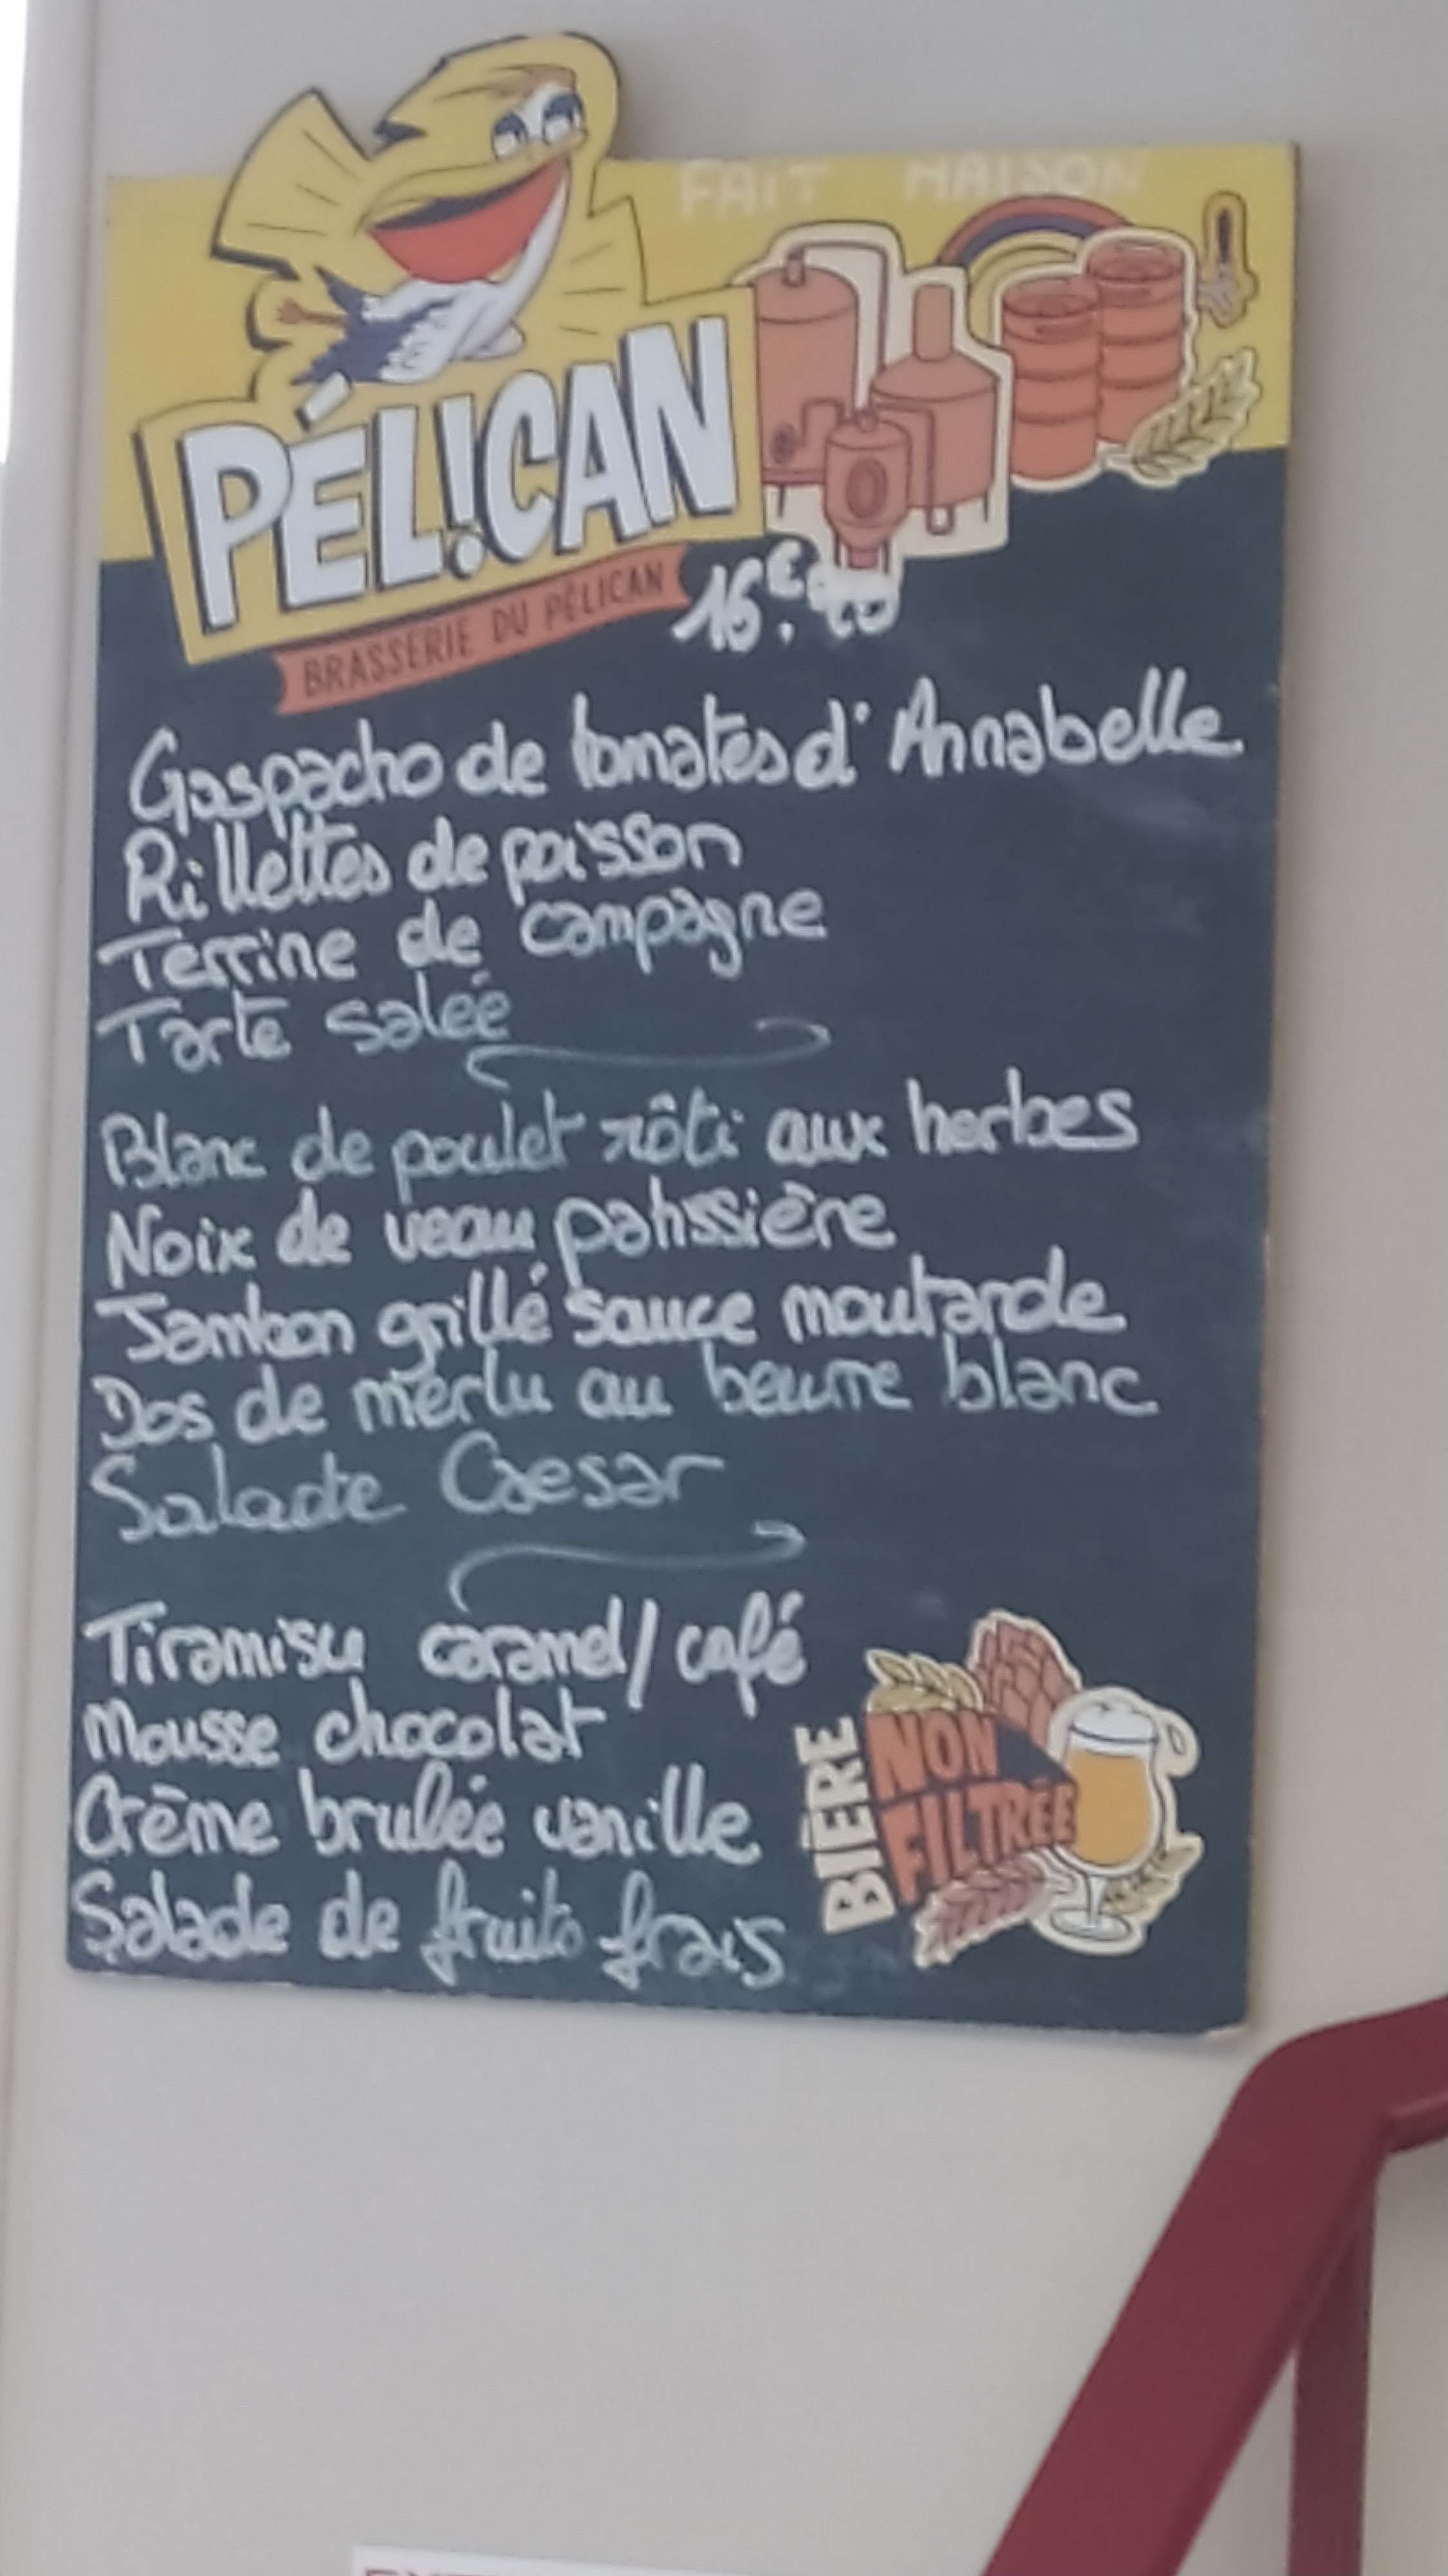 FAIT MAISON
PÉL!CAN
BRASSERIE DU PÉLICAN
16€
Gaspacho de tomates d'Annabelle
Rillettes de poisson
Terrine de campagne
Tarte salée
Blanc de poulet rôti aux herbes
Noix de veau patissière
Jambon grillé sauce moutarde
Dos de merlu au beurre blanc
Salade Caesar
Tiramisu caramel/café
Mousse chocolat
Crème brulée vanille
Salade de fruits frais
BIÈRE
NON
FILTRÉE